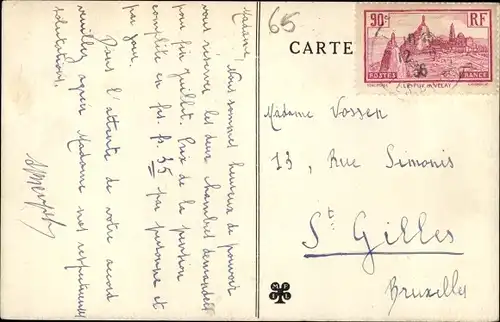 65
CARTE
90c RF
POSTES FRANCE
LE PUY-EN-VELAY
36
Madame,
Nous sommes heureux de pouvoir
vous réserver les deux chambres demandées
pour fin Juillet. Prix de la pension
complète en frs. fr. 35 par personne et
par jour.
Dans l'attente de votre accord
veuillez agréer Madame nos respectueuses
salutations.
Madame Vossen
13, Rue Simonis
St Gilles
Bruxelles